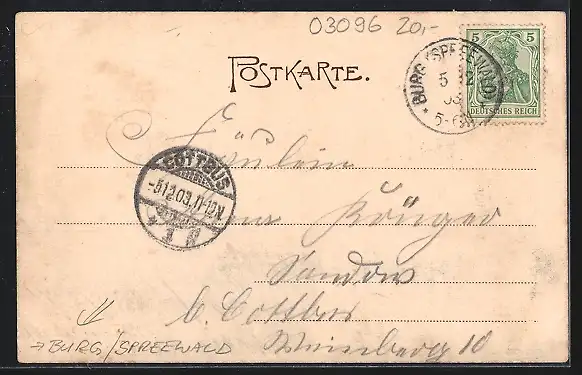 03096 20,-
POSTKARTE.
5 5
DEUTSCHES REICH
* BURG (SPREEWALD)
5 12
03
5-6N
Fräulein
COTTBUS
-5.12.03.11-12V.
* 1 g
Krüger
Sandow
b. Cottbus
→ BURG/SPREEWALD
Weinberg 10